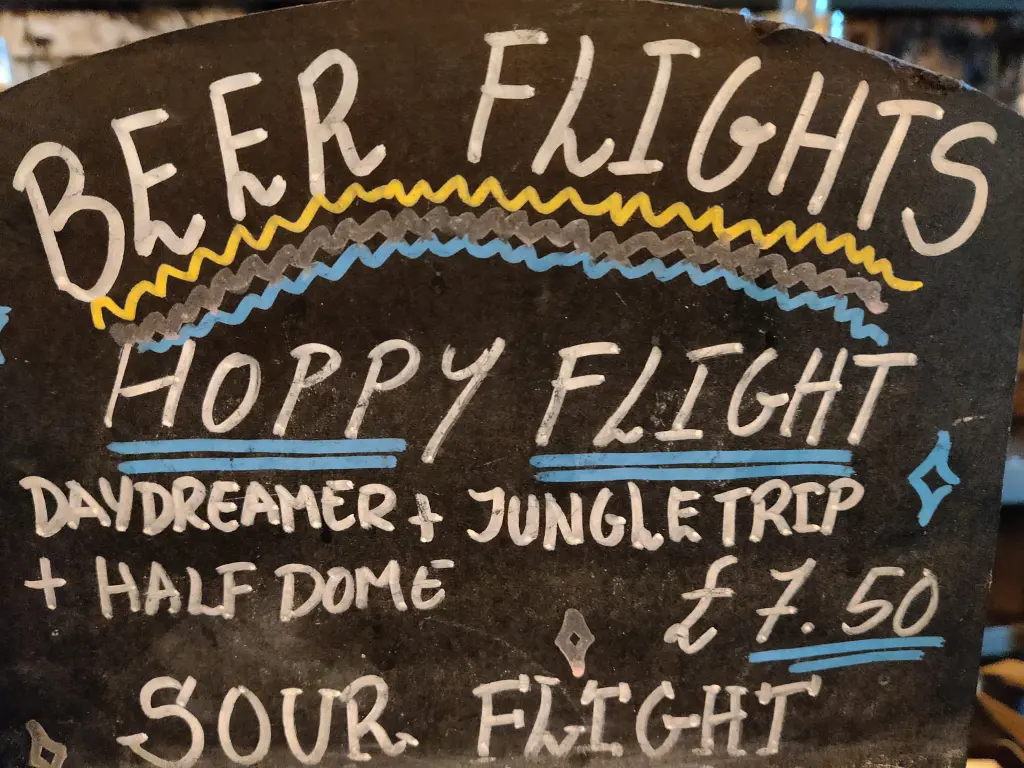 BEER FLIGHTS
HOPPY FLIGHT
DAYDREAMER + JUNGLE TRIP
+ HALF DOME £7.50
SOUR FLIGHT